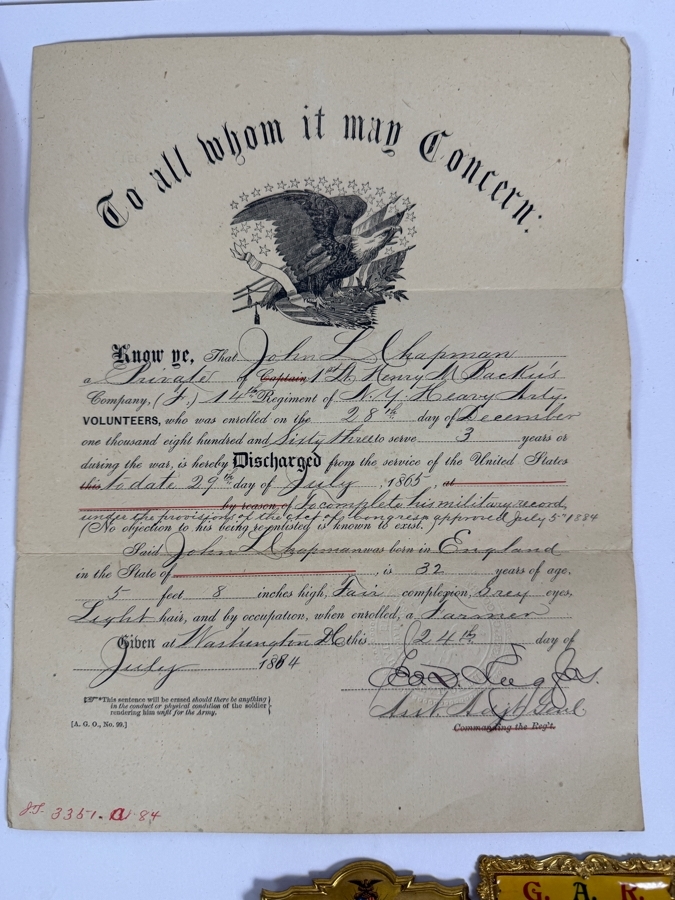 To all whom it may Concern:
Know ye, That John L Chapman
a Private of Captain 1st Lt Henry M Backus
Company, (F,) 14th Regiment of N. Y. Heavy Arty.
VOLUNTEERS, who was enrolled on the 28th day of December
one thousand eight hundred and Sixty three to serve 3 years or
during the war, is hereby Discharged from the service of the United States
this to date 29th day of July, 1865, at
by reason of To complete his military record
under the provisions of the act of Congress approved July 5th 1884
(No objection to his being re-enlisted is known to exist.*)
Said John L Chapman was born in England
in the State of , is 32 years of age,
5 feet 8 inches high, Fair complexion, Grey eyes,
Light hair, and by occupation, when enrolled, a Farmer
Given at Washington DC this 24th day of
July 1884
Asst. Adjt. Genl
Commanding the Reg't.
*This sentence will be erased should there be anything
in the conduct or physical condition of the soldier
rendering him unfit for the Army.
[A. G. O., No. 99.]
3351. a 84
G. A. R.